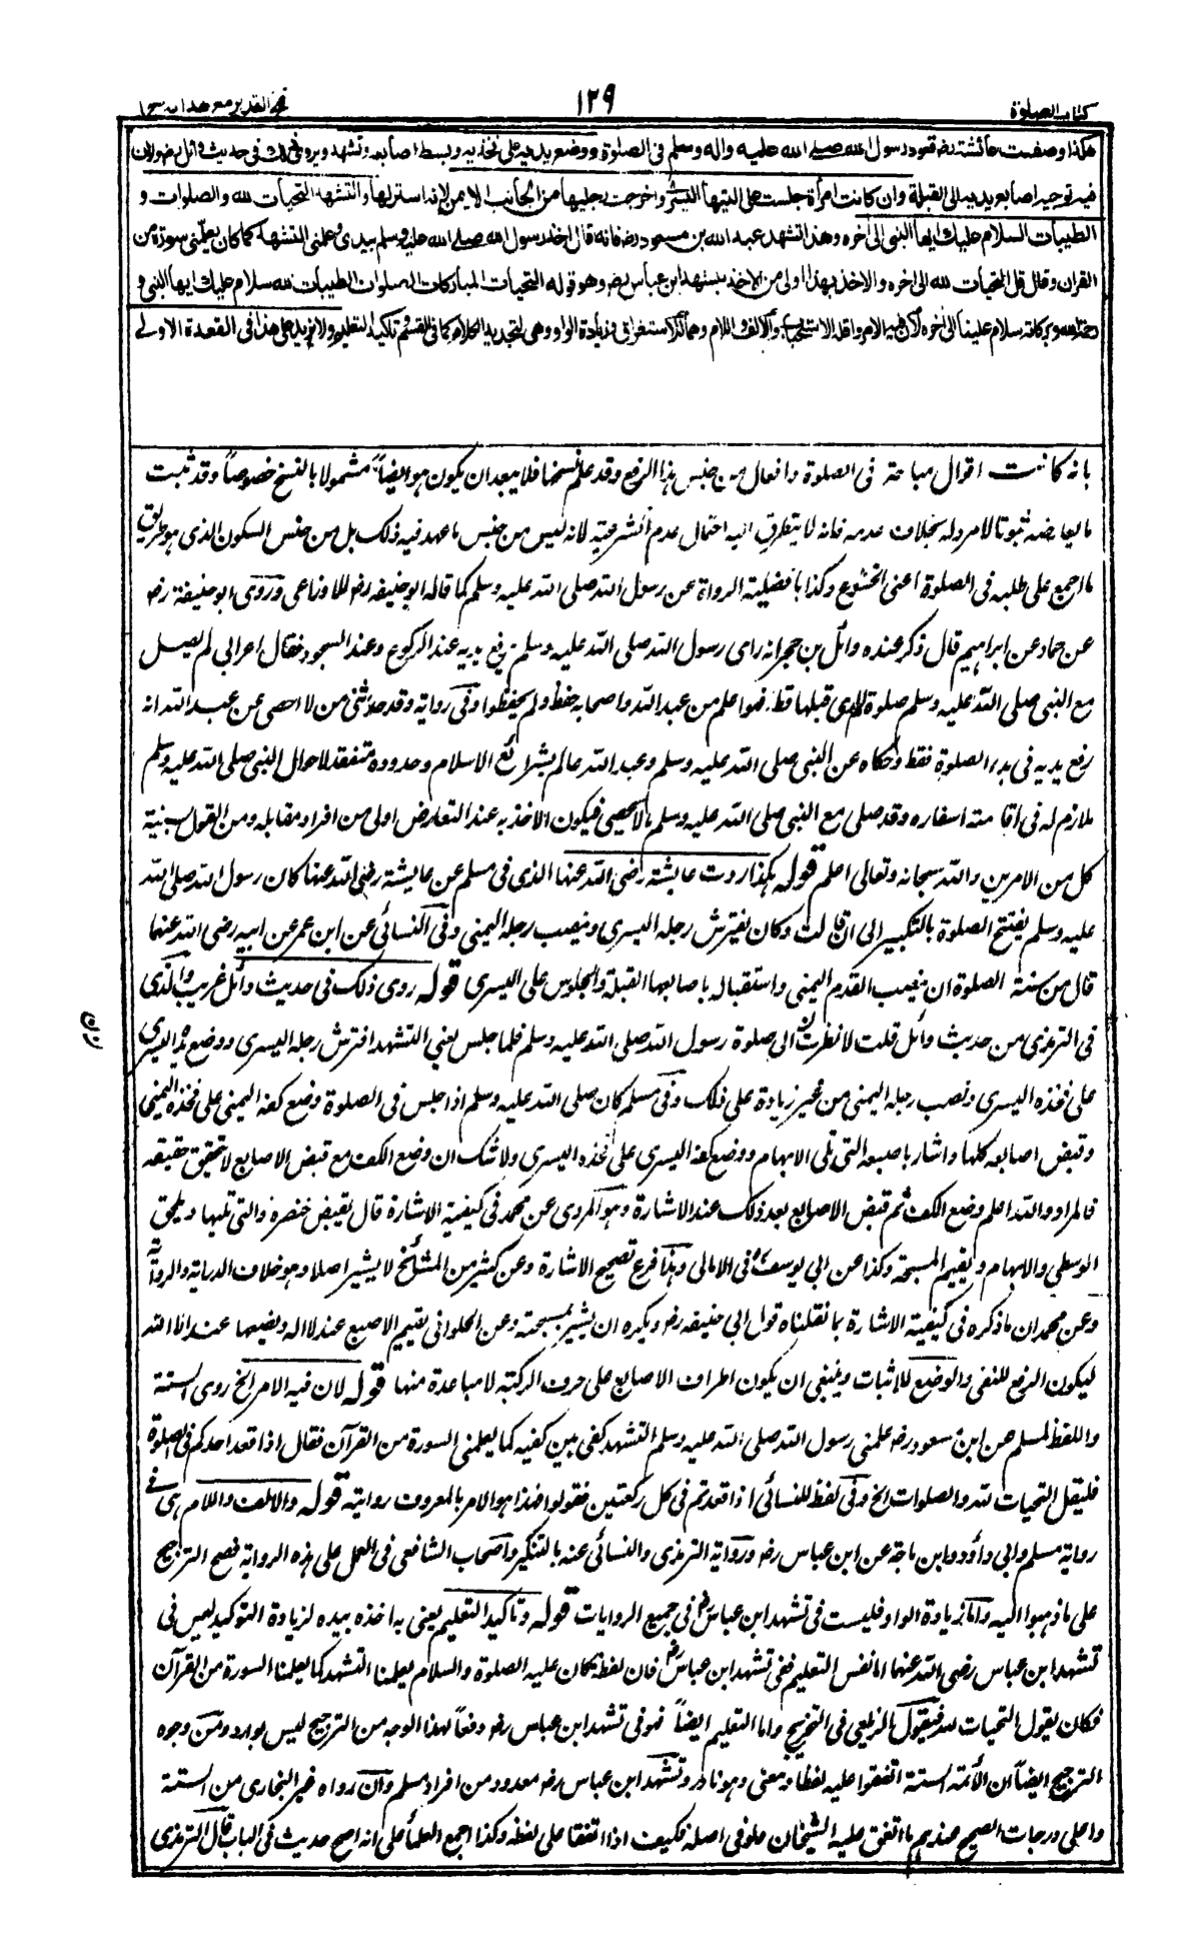 كتاب الصلوة
١٢٩
فتح القدير مع هداية ج١
هكذا وصفت عائشة رضـ قعود رسول الله صلى الله عليه واله وسلم فى الصلوة ووضع يديه على فخذيه وبسط اصابعه وتشهد ويروى ذلك فى حديث وائل رضـ ولان
فيه توجيه اصابع يديه الى القبلة وان كانت امرأة جلست على اليتها اليسرى واخرجت رجليها من الجانب الايمن لانه استر لها والتشهد التحيات لله والصلوات و
الطيبات السلام عليك ايها النبى الى آخره وهذا تشهد عبد الله بن مسعود رضـ فانه قال اخذ رسول الله صلى الله عليه وسلم بيدى وعلمنى التشهد كما كان يعلّمنى سورة من
القران وقال قل التحيات لله الى اخره والاخذ بهذا اولى من الاخذ بتشهد ابن عباس رضـ وهو قوله التحيات المباركات الصلوات الطيبات لله سلام عليك ايها النبى و
رحمة الله وبركاته سلام علينا الى آخره لان فيه الامر واقله الاستحباب والالف واللام وهما للاستغراق وزيادة الواو وهى لتجديد الكلام كما فى القسم وتاكيد التعليم ولا يزيد على هذا فى القعدة الاولى
بانه كانت اقوال مباحة فى الصلوة وافعال من جنس هذا الرفع وقد علم نسخها فلا يبعد ان يكون هو ايضاً مشمولا بالنسخ خصوصاً وقد ثبت
ما يعارضه ثبوتا لا مرد له بخلاف عدمه فانه لا يتطرق اليه احتمال عدم الشرعية لانه ليس من جنس ما عهد فيه ذلك بل من جنس السكون الذى هو طريق
ما اجمع على طلبه فى الصلوة اعنى الخشوع وكذا بافضلية الرواة عن رسول الله صلى الله عليه وسلم كما قاله ابو حنيفة رضـ للاوزاعى وروى ابو حنيفة رضـ
عن حماد عن ابراهيم قال ذكر عنده وائل بن حجر انه راى رسول الله صلى الله عليه وسلم يرفع يديه عند الركوع وعند السجود فقال اعرابى لم يصل
مع النبى صلى الله عليه وسلم صلوة ارى قبلها قط فهو اعلم من عبد الله واصحابه حفظ ولم يحفظوا وفى رواية وقد حدثنى من لا احصى عن عبد الله انه
رفع يديه فى بدء الصلوة فقط وحكاه عن النبى صلى الله عليه وسلم وعبد الله عالم بشرائع الاسلام وحدوده متفقد لاحوال النبى صلى الله عليه وسلم
ملازم له فى اقامته اسفاره وقد صلى مع النبى صلى الله عليه وسلم ما لا يحصى فيكون الاخذ به عند التعارض اولى من افراد مقابله ومن القول بسنية
كل من الامرين والله سبحانه وتعالى اعلم قوله هكذا روت عايشة رضى الله عنها الذى فى مسلم عن عايشة رضى الله عنها كان رسول الله صلى الله
عليه وسلم يفتتح الصلوة بالتكبير الى ان قالت وكان يفترش رجله اليسرى وينصب رجله اليمنى وفى النسائى عن ابن عمر عن ابيه رضى الله عنهما
قال من سنة الصلوة ان ينصب القدم اليمنى واستقباله باصابعها القبلة والجلوس على اليسرى قوله روى ذلك فى حديث وائل غريب والذى
فى الترمذى من حديث وائل قلت لانظرن الى صلوة رسول الله صلى الله عليه وسلم فلما جلس يعنى للتشهد افترش رجله اليسرى ووضع يده اليسرى
على فخذه اليسرى ونصب رجله اليمنى من غير زيادة على ذلك وفى مسلم كان صلى الله عليه وسلم اذا جلس فى الصلوة وضع كفه اليمنى على فخذه اليمنى
وقبض اصابعه كلها واشار باصبعه التى تلى الابهام ووضع كفه اليسرى على فخذه اليسرى ولا شك ان وضع الكف مع قبض الاصابع لا يتحقق حقيقة
فالمراد والله اعلم وضع الكف ثم قبض الاصابع بعد ذلك عند الاشارة وهو المروى عن محمد فى كيفية الاشارة قال يقبض خنصره والتى تليها ويحلق
الوسطى والابهام ويقيم المسبحة وكذا عن ابى يوسف فى الامالى وهذا فرع تصحيح الاشارة وعن كثير من المشائخ لا يشير اصلا وهو خلاف الدراية والرواية
وعن محمد ان ما ذكره فى كيفية الاشارة مما نقلناه قول ابى حنيفة رضـ ويكره ان يشير بمسبحته وعن الحلوانى يقيم الاصبع عند لا اله ويضعها عند الا الله
ليكون الرفع للنفى والوضع للاثبات وينبغى ان يكون اطراف الاصابع على حرف الركبة لا مباعدة منها قوله لان فيه الامر الخ روى الستة
واللفظ لمسلم عن ابن مسعود رضـ علمنى رسول الله صلى الله عليه وسلم التشهد كفى بين كفيه كما يعلمنى السورة من القرآن فقال اذا قعد احدكم فى الصلوة
فليقل التحيات لله والصلوات الخ وفى لفظ للنسائى اذا قعدتم فى كل ركعتين فقولوا هذا هو الامر بالمعروف روايته قوله والالف واللام هى فى
رواية مسلم وابى داؤد وابن ماجة عن ابن عباس رضـ ورواية الترمذى والنسائى عنه بالتنكير واصحاب الشافعى فى العمل على هذه الرواية فصح الترجيح
على ما ذهبوا اليه واما زيادة الواو فليست فى تشهد ابن عباس فى جميع الروايات قوله وتاكيد التعليم يعنى به اخذه بيده لزيادة التوكيد ليس فى
تشهد ابن عباس رضى الله عنهما اما نفس التعليم ففى تشهد ابن عباس فان لفظه كان عليه الصلوة والسلام يعلمنا التشهد كما يعلمنا السورة من القرآن
فكان يقول التحيات لله فيقول الزيلعى فى التخريج واما التعليم ايضاً فهو فى تشهد ابن عباس رضـ دفعاً لهذا الوجه من الترجيح ليس بوارد ومن وجوه
الترجيح ايضاً ان الأئمة الستة اتفقوا عليه لفظا ومعنى وهو نادر وتشهد ابن عباس رضـ معدود من افراد مسلم وان رواه غير البخارى من الستة
واعلى درجات الصحيح عندهم ما اتفق عليه الشيخان ولو فى اصله فكيف اذا اتفقا على لفظه وكذا اجمع العلماء على انه اصح حديث فى الباب قال الترمذى